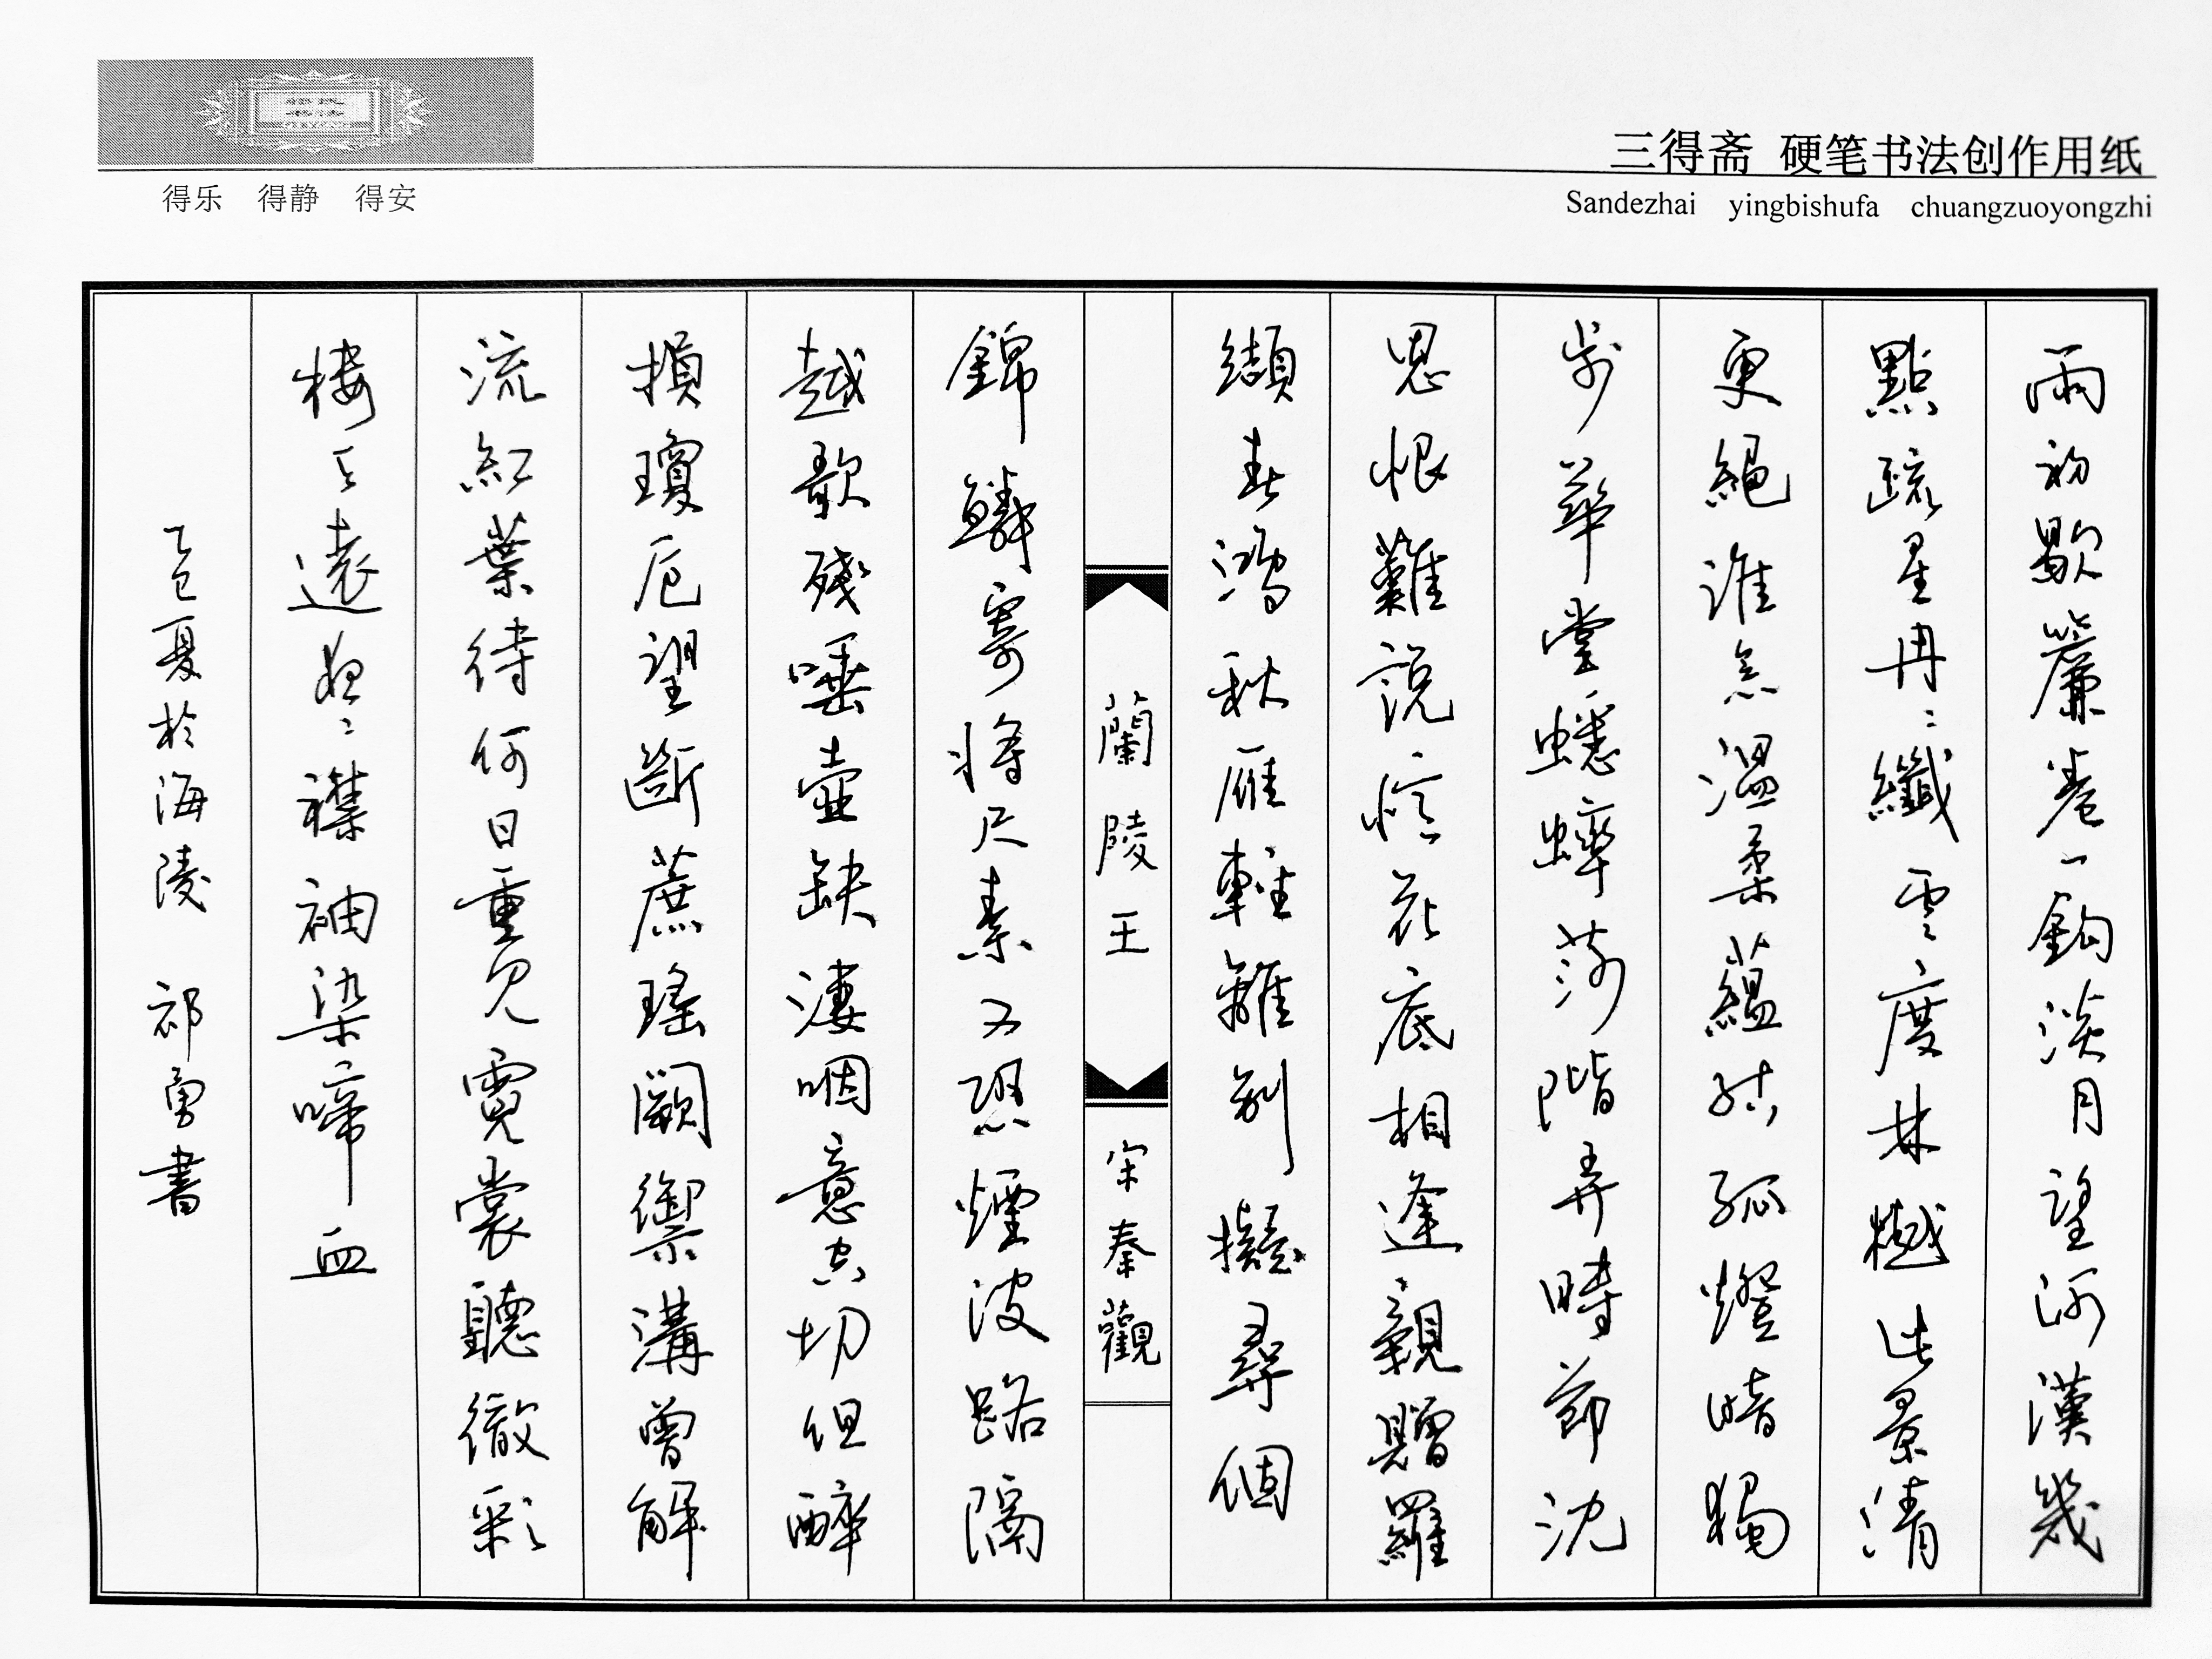 三得斋 硬笔书法创作用纸
Sandezhai yingbishufa chuangzuoyongzhi
得乐 得静 得安
雨初歇簾卷一鉤淡月望河漢幾
點疏星冉冉纖雲度林樾此景清
更絕誰念溫柔蘊結孤燈暗獨
步華堂蟋蟀莎階弄時節沈
思恨難說憶花底相逢親贈羅
纈春鴻秋雁輕離別擬尋個
蘭陵王 宋秦觀
錦鱗寄將尺素又恐煙波路隔
越歌殘唾壺缺淒咽意空切但醉
損瓊卮望斷蔗瑤闕禦溝曾解
流紅葉待何日重見霓裳聽徹彩
樓天遠夜夜襟袖染啼血
乙巳夏於海陵 祁勇書